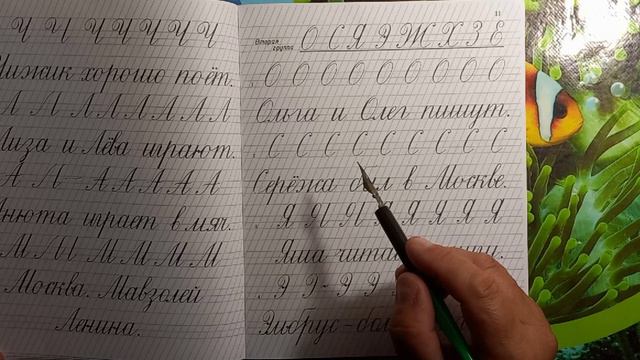 Ч Ч Ч Ч Ч Ч Ч
Чижик хорошо поёт.
Л Л Л Л Л Л Л Л
Лиза и Лёва играют.
А А А А А А А
Анюта играет в мяч.
М М М М М М М
Москва. Мавзолей
Ленина.
11
Вторая группа О С Я Э Ж Х З Е
О О О О О О О О О
Ольга и Олег пишут.
С С С С С С С С С
Серёжа был в Москве.
Я Я Я Я Я Я Я Я
Яша
Э Э Э Э Э
Эльбрус -